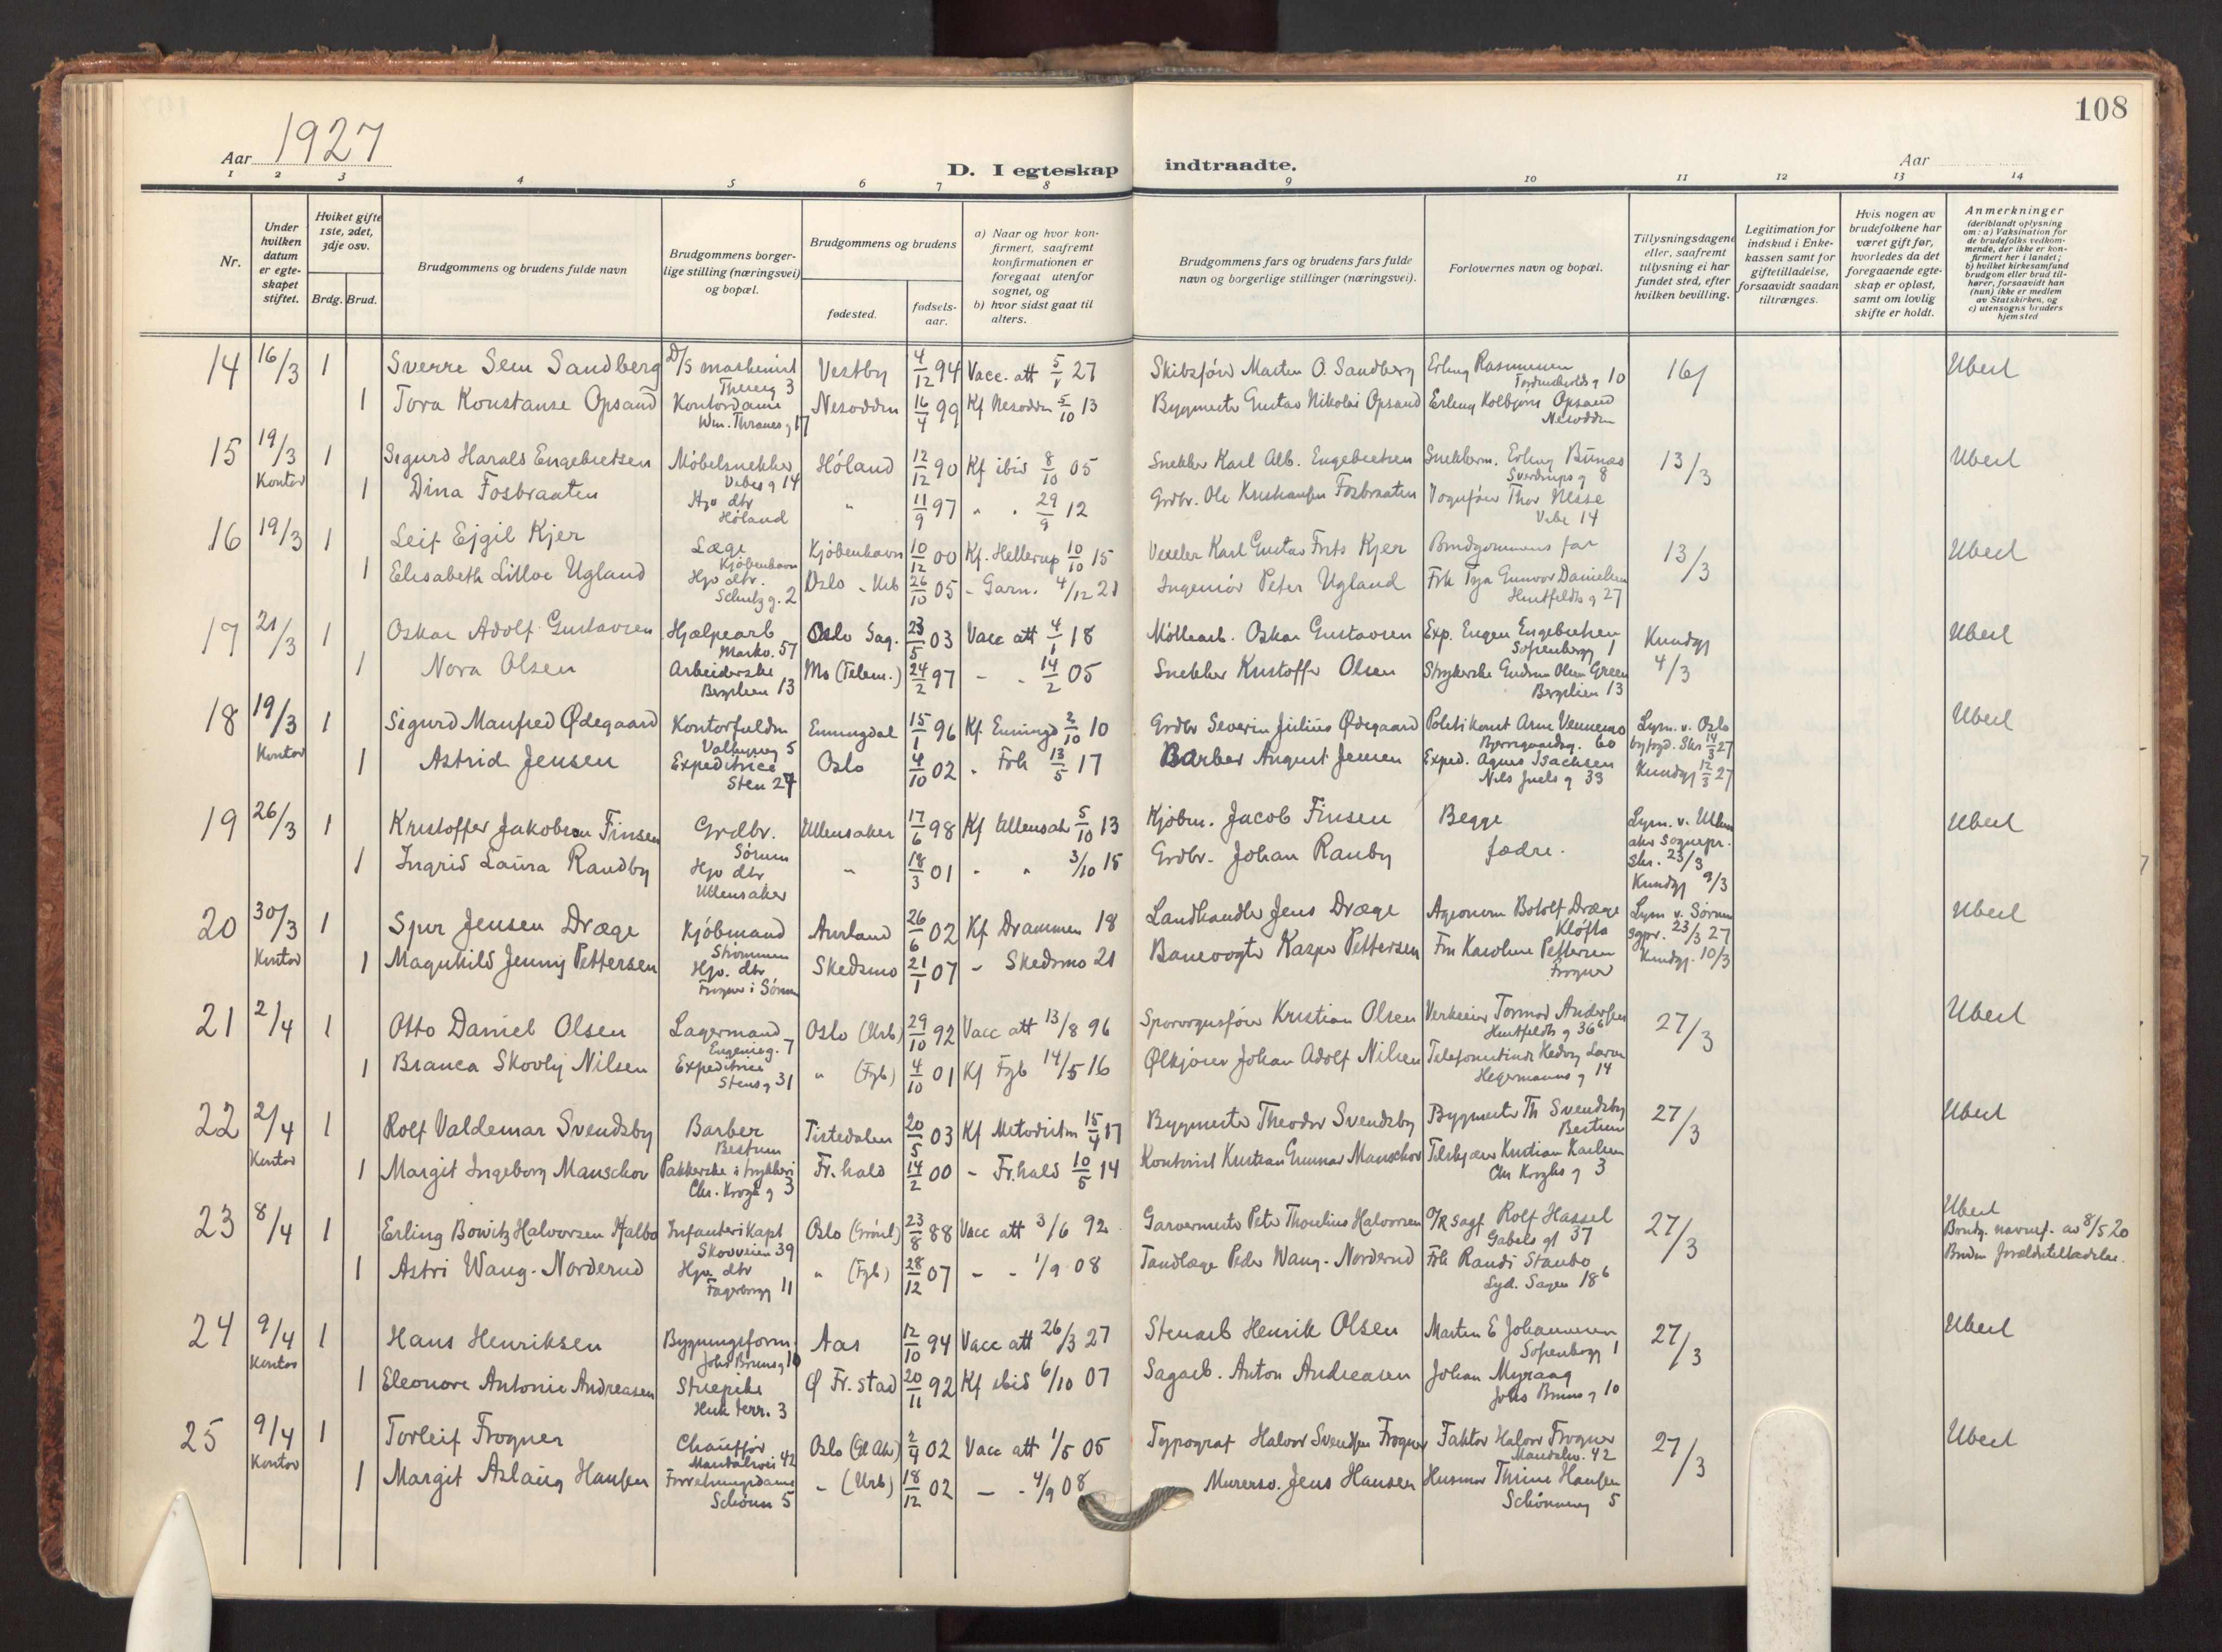 108
Aar 1927
D. I egteskap indtraadte.
Aar
1 2 3 4 5 6 7 8 9 10 11 12 13 14
Nr.
Under hvilken datum er egteskapet stiftet.
Hviket gifte 1ste, 2det, 3dje osv.
Brdg. Brud.
Brudgommens og brudens fulde navn
Brudgommens borgerlige stilling (næringsvei) og bopæl.
Brudgommens og brudens
fødested.
fødselsaar.
a) Naar og hvor konfirmert, saafremt konfirmationen er foregaat utenfor sognet, og
b) hvor sidst gaat til alters.
Brudgommens fars og brudens fars fulde navn og borgerlige stillinger (næringsvei).
Forlovernes navn og bopæl.
Tillysningsdagene eller, saafremt tillysning ei har fundet sted, efter hvilken bevilling.
Legitimation for indskud i Enkekassen samt for giftetilladelse, forsaavidt saadan tiltrænges.
Hvis nogen av brudefolkene har været gift før, hvorledes da det foregaaende egteskap er opløst, samt om lovlig skifte er holdt.
Anmerkninger
(deriblandt oplysning om: a) Vaksination for de brudefolks vedkommende, der ikke er konfirmert her i landet;
b) hvilket kirkesamfund brudgom eller brud tilhører, forsaavidt han (hun) ikke er medlem av Statskirken, og
c) utensogns bruders hjemsted
14 16/3 1 Sverre Sem Sandberg D/S maskinist Vestby 4/12 94 Vacc. att 27 Skibsfører Marten O. Sandberg Erling Rasmussen 10 16/ Ubeil
1 Tora Konstanse Opsand Kontordame Wm. Thranes g 17 Nesodden 16/4 99 Kf Nesodden 5/10 13 Bygmester Gustav Nikolai Opsand Erling Kolbjørn Opsand Nesodden
15 19/3 Kontor 1 Sigurd Harald Engebretsen Møbelsnekker Vibes g 14 Høland 12/12 90 Kf ibid 8/10 05 Snekker Karl Alb. Engebretsen Snekkerm. Erling Bunæs Sverdrups g 8 13/3 Ubeil
1 Dina Fosbraaten Hjv dtr Høland " 11/9 97 " " 29/9 12 Grdbr. Ole Kristiansen Fosbraaten Vognfører Thor Vibe 14
16 19/3 1 Leif Ejgil Kjer Læge Kjøbenhavn Kjøbenhavn 10/12 00 Kf. Hellerup 10/10 15 Karl Gustav Frits Kjer Brudgommens far 13/3 Ubeil
1 Elisabeth Lilloe Ugland Hjv dtr. Schultz g. 2 Oslo - Urb 26/10 05 - Garn. 4/12 21 Ingeniør Peter Ugland Frk Gunvor Danielsen Huitfeldts g 27
17 21/3 1 Oskar Adolf Gustavsen Hjælpearb Markv. 57 Oslo Sag. 23/5 03 Vacc att 4/1 18 Møllearb. Oskar Gustavsen Exp. Eugen Engebretsen Sofienbergg 1 Kundgj 4/3 Ubeil
1 Nora Olsen Arbeiderske Bergslien 13 Mo (Telem.) 24/2 97 - - 14/2 05 Snekker Kristoffer Olsen Strykerske Gudrun Olsen Green Bergslien 13
18 19/3 Kontor 1 Sigurd Manfred Ødegaard Kontorfuldm 5 Enningdal 15/1 96 Kf Enningd 2/10 10 Grdbr Severin Julius Ødegaard Politikonst Arne Vennemo Bjerregaardsg. 60 Lysn. v. Oslo byfgd. Skr 14/3 27 Ubeil
1 Astrid Jensen Expeditrice Sten 27 Oslo 4/10 02 " Frk 13/5 17 Barber August Jensen Exped. Agnes Isachsen Nils Juels g 33 Kundgj 12/3 27
19 26/3 1 Kristoffer Jakobsen Finsen Grdbr. Sørum Ullensaker 17/6 98 Kf Ullensak 5/10 13 Kjøbm. Jacob Finsen Begge Lysn. v. Ullensaker Sognepr. Skr. 23/3 Ubeil
1 Ingrid Laura Randby Hjv dtr Ullensaker " 18/3 01 " " 3/10 15 Grdbr. Johan Ranby fædre. Kundgj 9/3
20 30/3 Kontor 1 Jensen Dræge Kjøbmand Strømmen Aurland 26/6 02 Kf Drammen 18 Landhandler Jens Dræge Agronom Botolf Dræge Kløfta Lysn v. Sørum Sgpr. 23/3 27 Ubeil
1 Magnhild Jenny Pettersen Hjv. dtr Frogner i Sørum Skedsmo 21/1 07 - Skedsmo 21 Banevogter Kasper Pettersen Fru Karoline Pettersen Frogner Kundgj. 10/3
21 2/4 1 Otto Daniel Olsen Lagermand Eugenieg. 7 Oslo (Urb) 29/10 92 Vacc att 13/8 96 Sporvognsfører Kristian Olsen Verkseier Tormod Andersen Huitfeldts g 36 27/3 Ubeil
1 Branca Skovly Nilsen Expeditrice Stensg 31 " (Fgb) 4/10 01 Kf Fgb 14/5 16 Ølkjører Johan Adolf Nilsen Hedvig Hegermanns g 14
22 2/4 Kontor 1 Rolf Valdemar Svendsby Barber Bestum Tistedalen 20/5 03 Kf Metodistm 15/4 17 Bygmester Theodor Svendsby Bygmester Th Svendsby Bestum 27/3 Ubeil
1 Margit Ingeborg Manschov Pakkerske i trykkeri Chr. Krogh g 3 Fr. hald 14/2 00 - Fr.hald 10/5 14 Kontorist Kristian Gunnar Manschov Kristian Karlsen Chr Kroghs g 3
23 8/4 1 Erling Bowitz Halvorsen Halbo Infanteri Kapt Skovveien 39 Oslo (Grønl) 23/8 88 Vacc att 3/6 92 Garvermester Peter Thorelius Halvorsen O/R Sagf Rolf Hassel Gabels gt 37 27/3 Ubeil Brudg. navnef. av 8/5 20
1 Astri Wang-Norderud Hjv dtr Fagerborgg 11 " (Fgb) 28/12 07 - - 1/9 08 Tandlæge Peder Wang-Norderud Frk Randi Staubo Lyd. Sagen 18 Bruden forældretilladelse.
24 9/4 Kontor 1 Hans Henriksen Bygningsform. Johs Bruns g 10 Aas 12/10 94 Vacc att 26/3 27 Stenarb Henrik Olsen Marten E Johannesen Sofienbergg 1 27/3 Ubeil
1 Eleonore Antonie Andreasen Stuepike Huk terr. 3 Ø Fr. stad 20/11 92 Kf ibid 6/10 07 Sagarb. Anton Andreasen Johan Myraag Johs Bruns g 10
25 9/4 Kontor 1 Torleif Frogner Chauffør Mandalsvei 42 Oslo (Gl Ak) 2/4 02 Vacc att 1/5 05 Typograf Halvor Svendsen Frogner Faktor Halvor Frogner Mandalsv. 42 27/3 Ubeil
1 Margit Aslaug Hansen Forretningsdame Schønn 5 " (Urb) 18/12 02 - - 4/9 08 Murersv. Jens Hansen Husmor Thrine Hansen Schønning 5